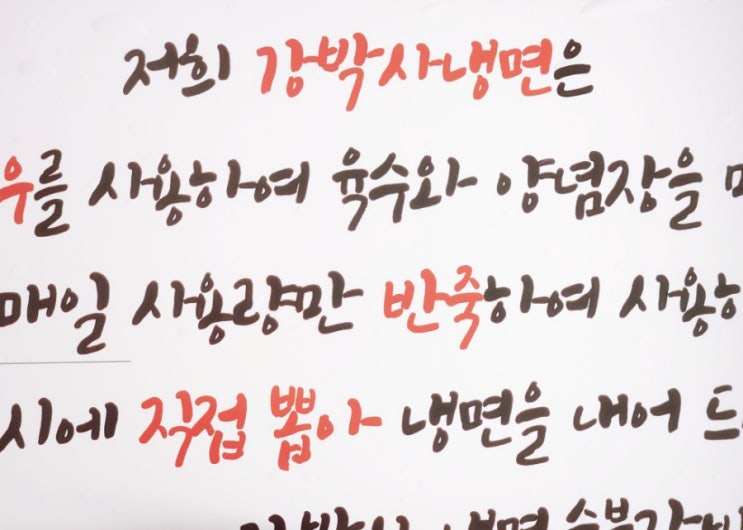 저희 강박사냉면은
우를 사용하여 육수와 양념장을
매일 사용량만 반죽하여 사용하
시에 직접 뽑아 냉면을 내어 드